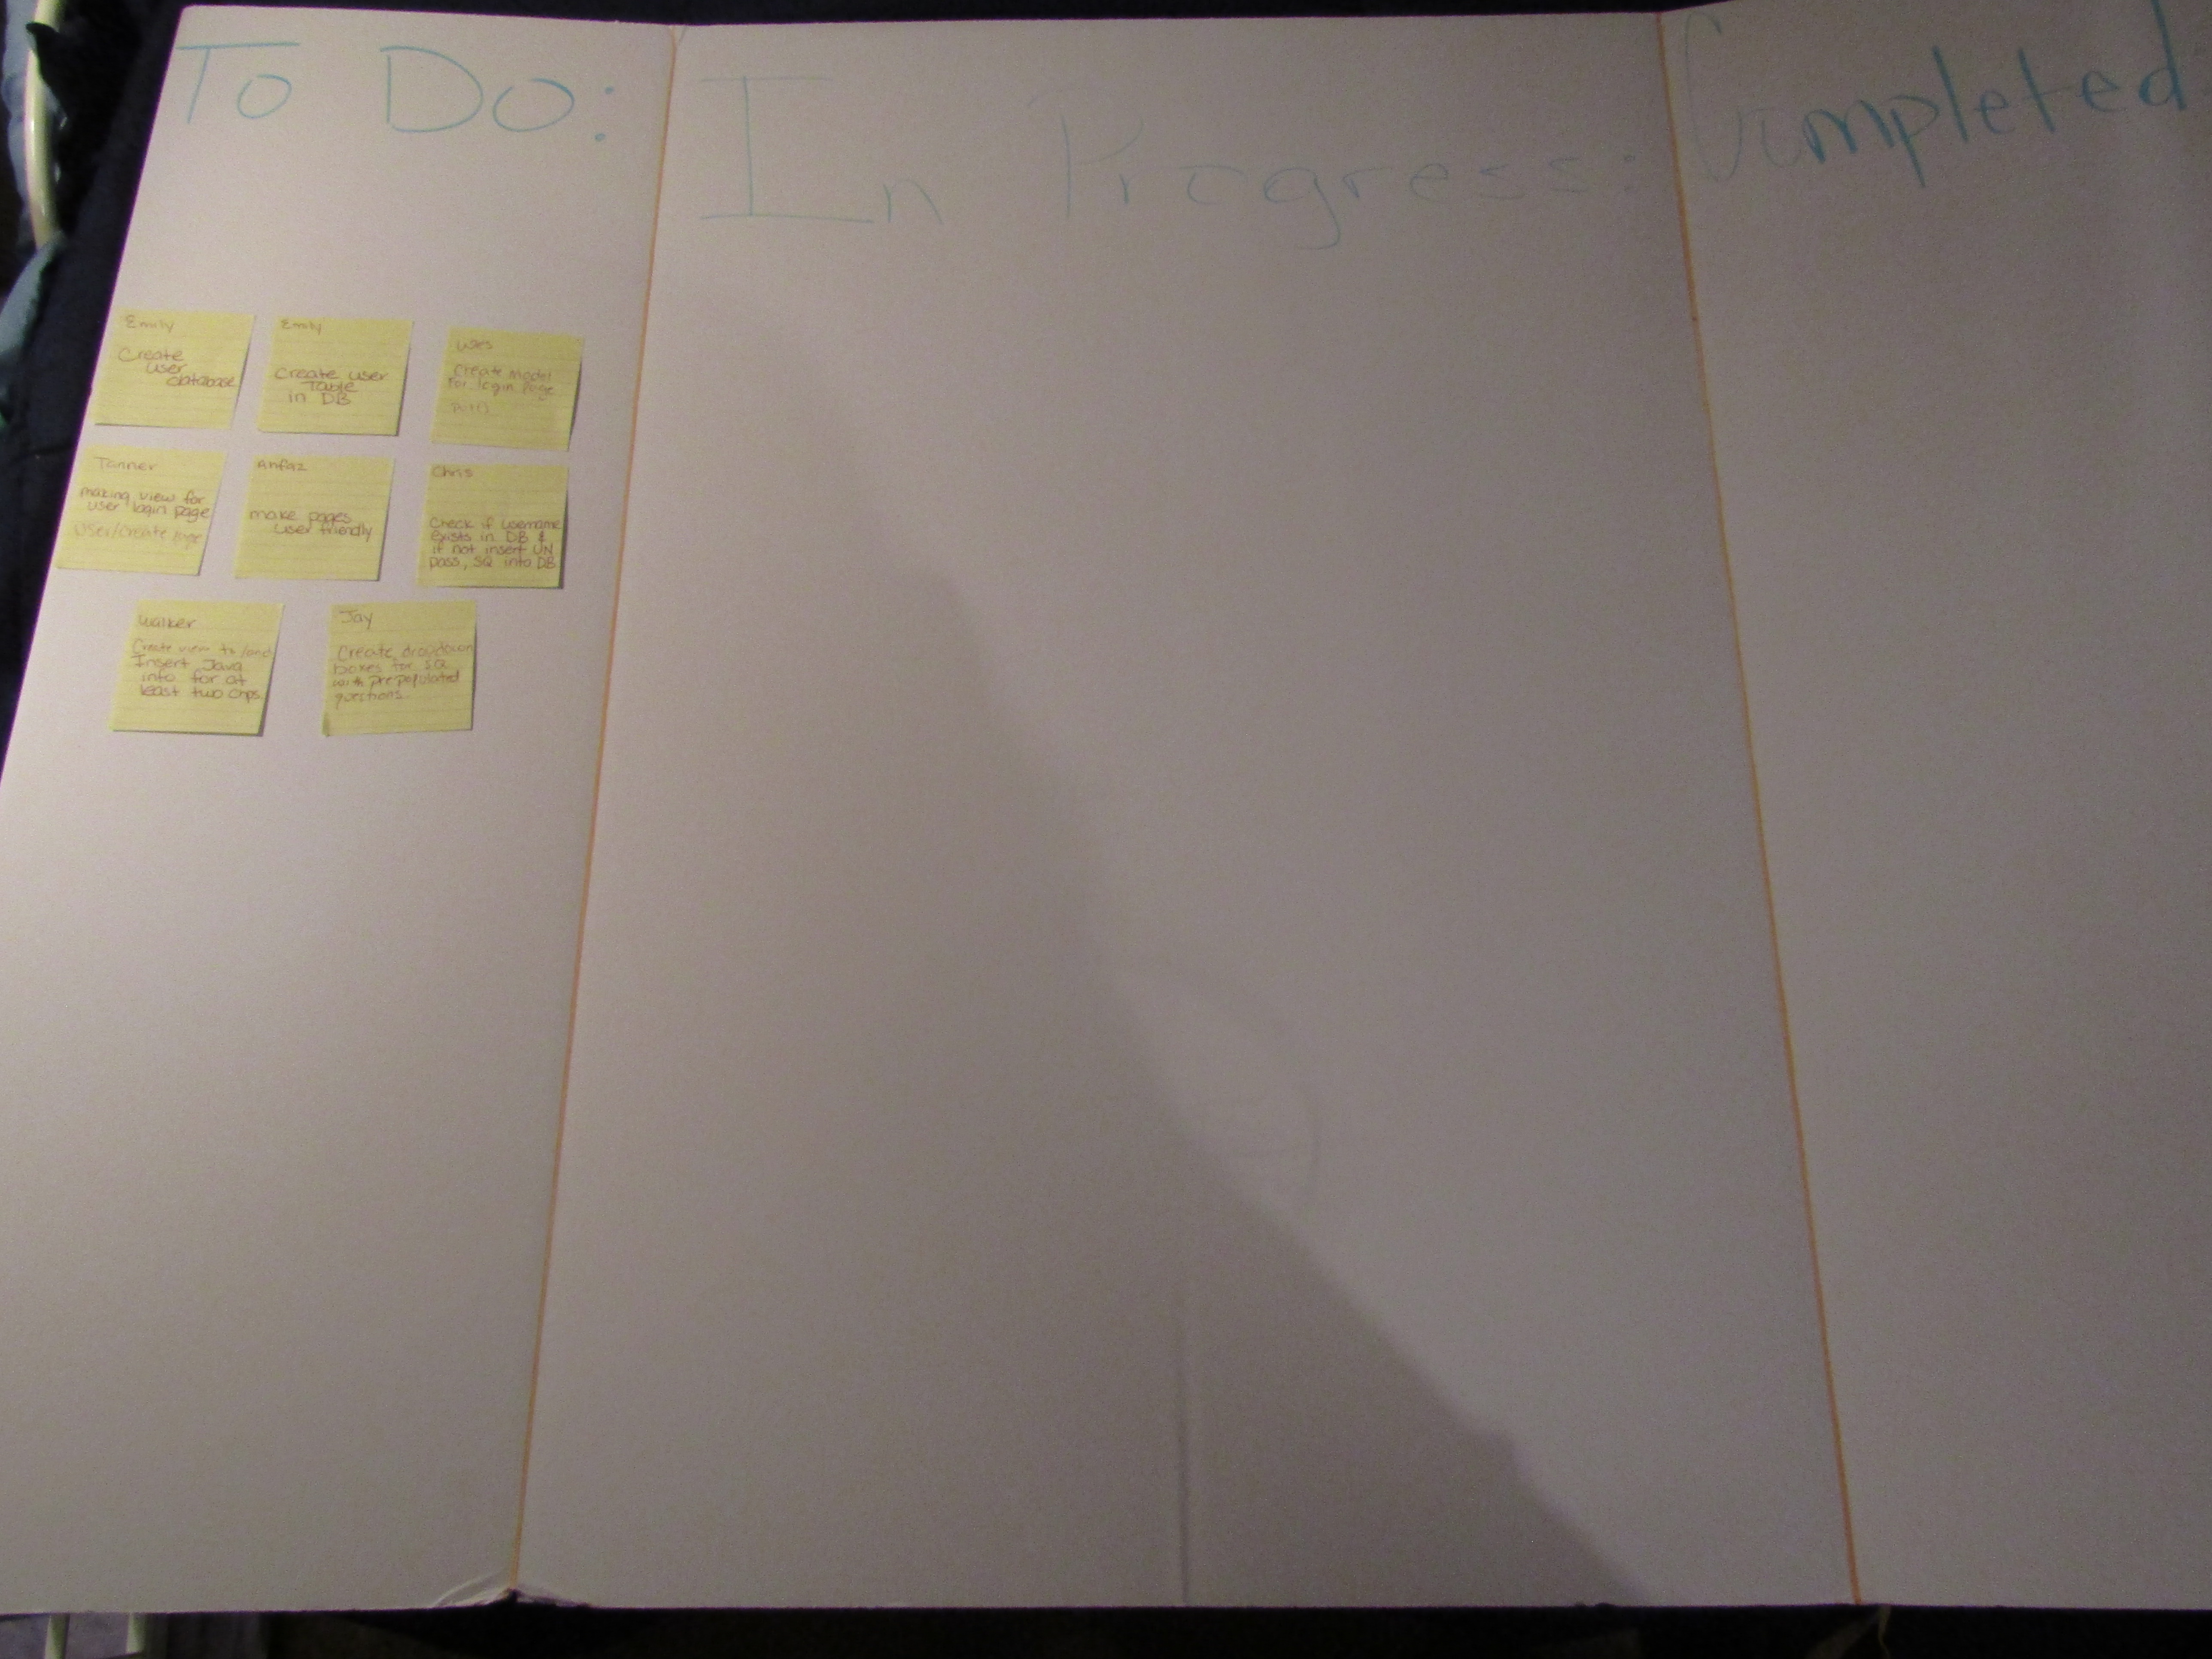 To Do:
Emily
Create
user
database
Emily
Create user
Table
in DB
Create Model
for login page
Tanner
making view for
user login page
User/Create page
make pages
user friendly
Chris
Check if username
exists in DB &
if not insert UN
pass, SQ into DB
Walker
Create view to land
Insert Java
info for at
least two Orgs.
Jay
Create dropdown
boxes for SQ
with prepopulated
questions.
In Progress:
Completed